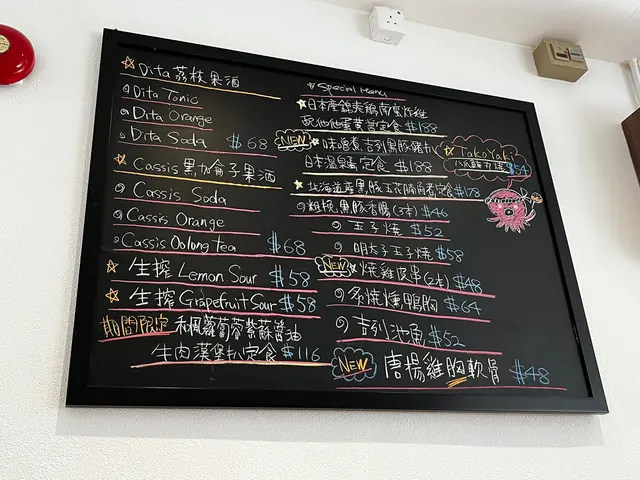 Dita 荔枝果酒
Dita Tonic
Dita Orange
Dita Soda $68
Cassis 黑加侖子果酒
Cassis Soda
Cassis Orange
Cassis Oolong tea $68
生搾 Lemon Sour $58
生搾 Grapefruit Sour $58
期間限定 和風蘿蔔蓉紫蘇醬油
牛肉漢堡扒定食 $116
Special Menu
日本産錦爽鷄南蠻炸雞
配他他蛋黃醬定食 $188
NEW 味噌煮吉列黑豚豬扒
日本溫泉蛋定食 $188
TakoYaki
八爪魚丸燒 $54
北海道産黑豚五花腩角煮定食 $178
粗挽黑豚香腸(3本) $46
玉子燒 $52
明太子玉子燒 $58
NEW 燒雞皮串(2本) $48
炙燒燻鴨胸 $64
吉列池魚 $52
NEW 唐揚雞胸軟骨 $48